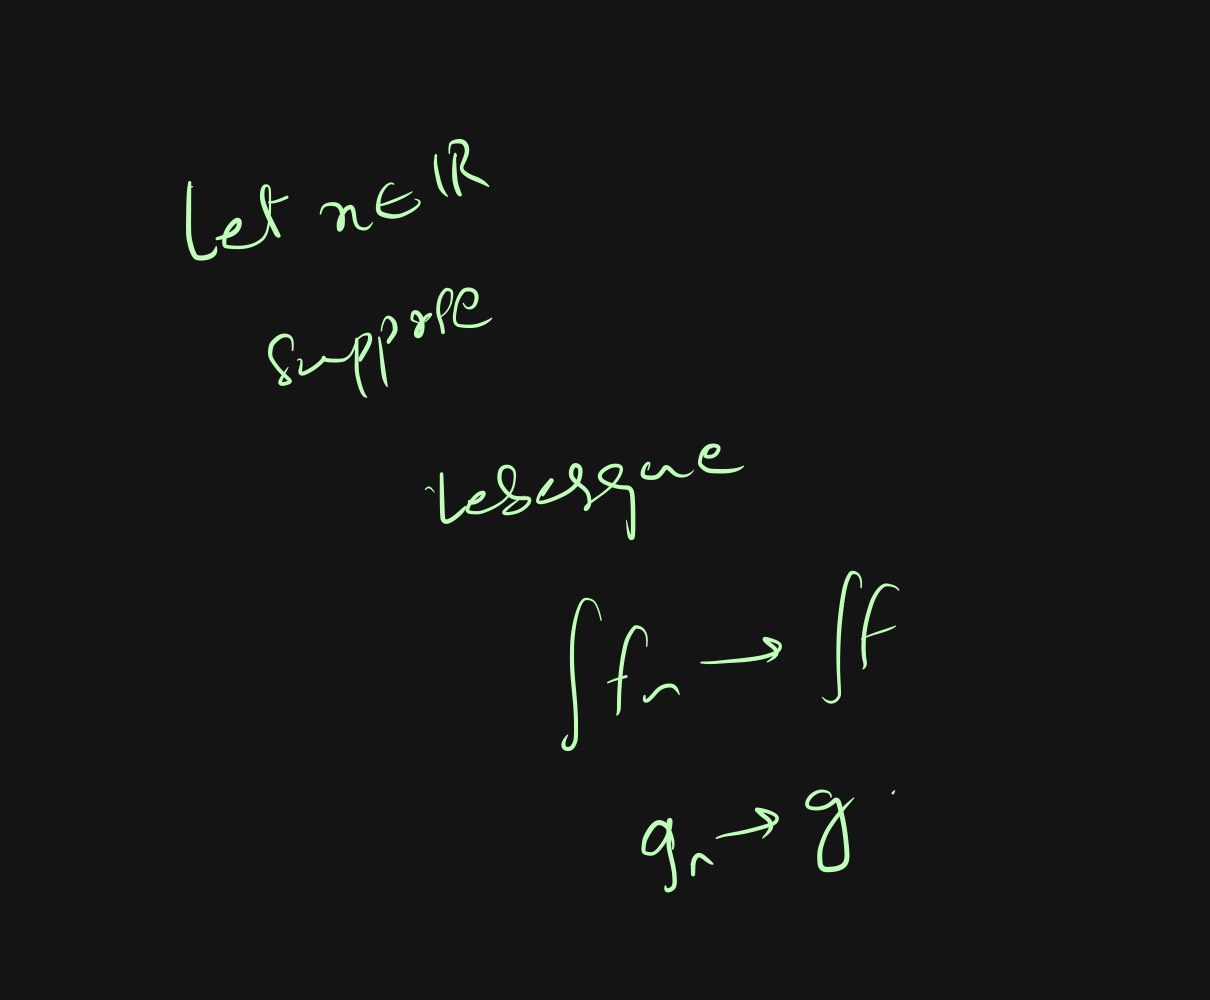 Let x ∈ ℝ
suppose
Lebesgue
∫ fₙ → ∫ f
gₙ → g